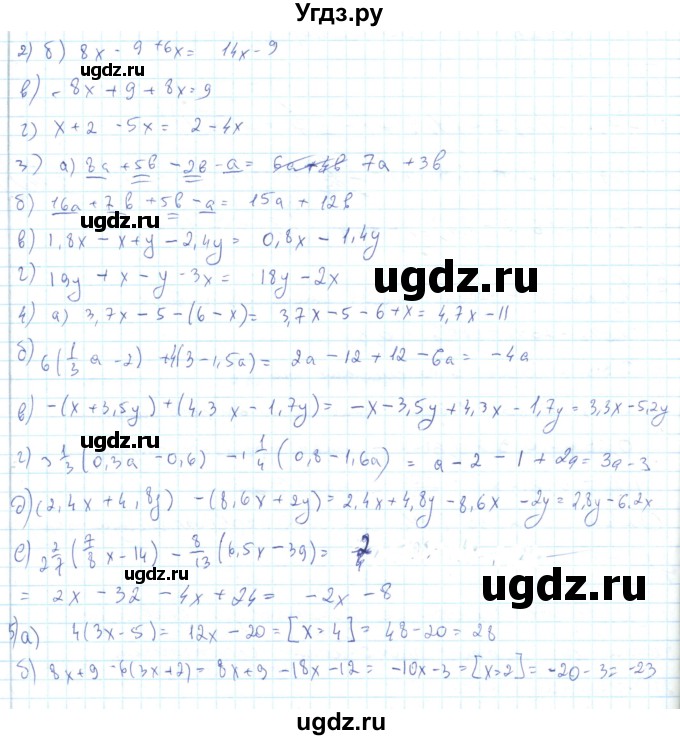 Угдз.ру
2) б) 8x - 9 + 6x = 14x - 9
в) - 8x + 9 + 8x = 9
г) x + 2 - 5x = 2 - 4x
3) а) 8a + 5b - 2b - a = 7a + 3b
б) 16a + 7b + 5b - a = 15a + 12b
в) 1,8x - x + y - 2,4y = 0,8x - 1,4y
г) 19y + x - y - 3x = 18y - 2x
4) а) 3,7x - 5 - (6 - x) = 3,7x - 5 - 6 + x = 4,7x - 11
б) 6(1/3 a - 2) + 4(3 - 1,5a) = 2a - 12 + 12 - 6a = -4a
в) -(x + 3,5y) + (4,3x - 1,7y) = -x - 3,5y + 4,3x - 1,7y = 3,3x - 5,2y
г) 3 1/3 (0,3a - 0,6) - 1 1/4 (0,8 - 1,6a) = a - 2 - 1 + 2a = 3a - 3
д) (2,4x + 4,8y) - (8,6x + 2y) = 2,4x + 4,8y - 8,6x - 2y = 2,8y - 6.2x
е) 2 2/7 (7/8 x - 14) - 8/13 (6,5x - 39) =
= 2x - 32 - 4x + 24 = -2x - 8
5) а) 4(3x - 5) = 12x - 20 = [x = 4] = 48 - 20 = 28
б) 8x + 9 - 6(3x + 2) = 8x + 9 - 18x - 12 = -10x - 3 = [x = 2] = -20 - 3 = -23
ugdz.ru
ugdz.ru
ugdz.ru
ugdz.ru
ugdz.ru
ugdz.ru
ugdz.ru
ugdz.ru
ugdz.ru
ugdz.ru
ugdz.ru